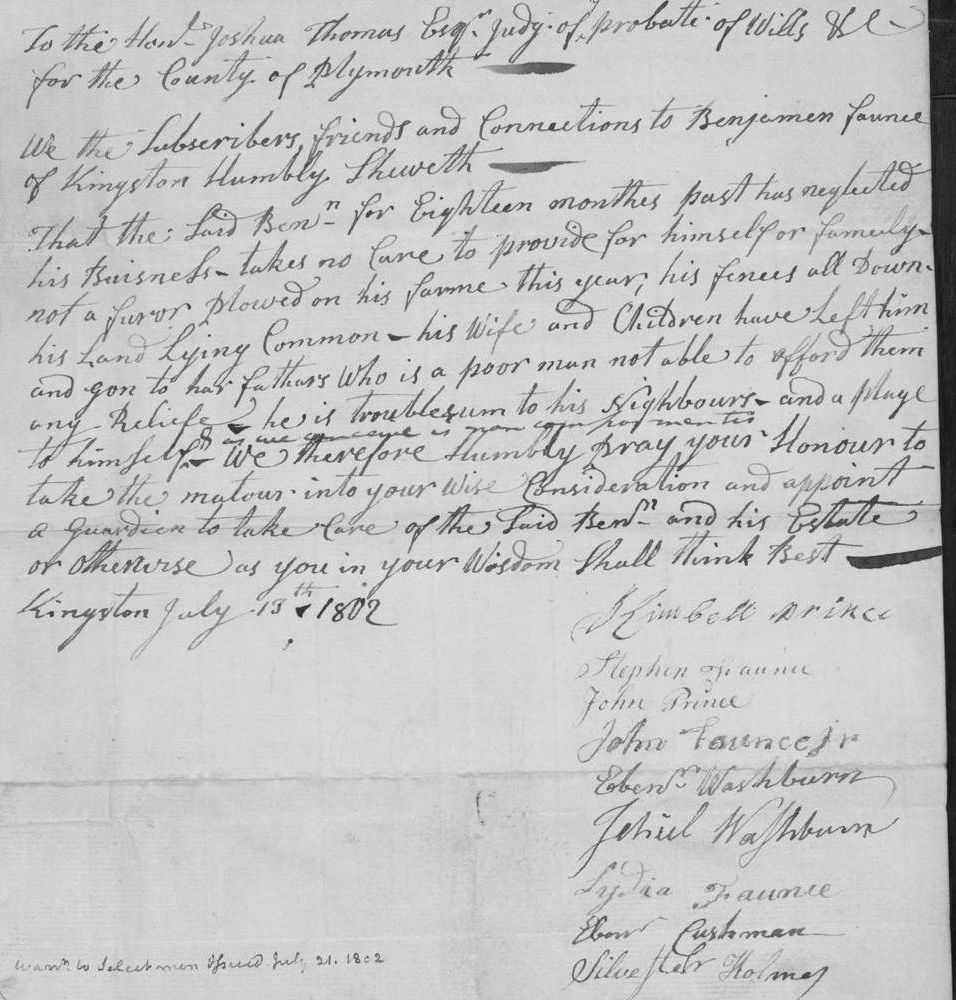 To the Hon.l Joshua Thomas Esqr. Judg. of probate of Wills &c
for the County of Plymouth
We the Subscribers, friends and Connections to Benjemen faunce
of Kingston Humbly Sheweth
That the Said Benn for Eighteen monthes past has neglected
his Buisness - takes no Care to provide for himself or famely -
not a furor plowed on his farme this year, his fences all Down -
his Land Lying Common - his Wife and Children have Left him
and gon to har fathars Who is a poor man not able to afford them
any Reliefe - he is troublesum to his Nighbours - and a plage
& as we conceive is non compos mentis
to himself - We therefore Humbly pray your Honour to
take the matour into your Wise Consideration and appoint
a guardien to take Care of the Said Benn and his Estate
or otherwise as you in your Wisdom Shall think Best
Kingston July 13th 1802
Kimball Prince
Stephen Faunce
John Prince
John Faunce Jr
Ebenr Washburn
Jehiel Washburn
Lydia Faunce
Ebenr Cushman
Silvester Holmes
Warrt. to Select men Issued July 21. 1802